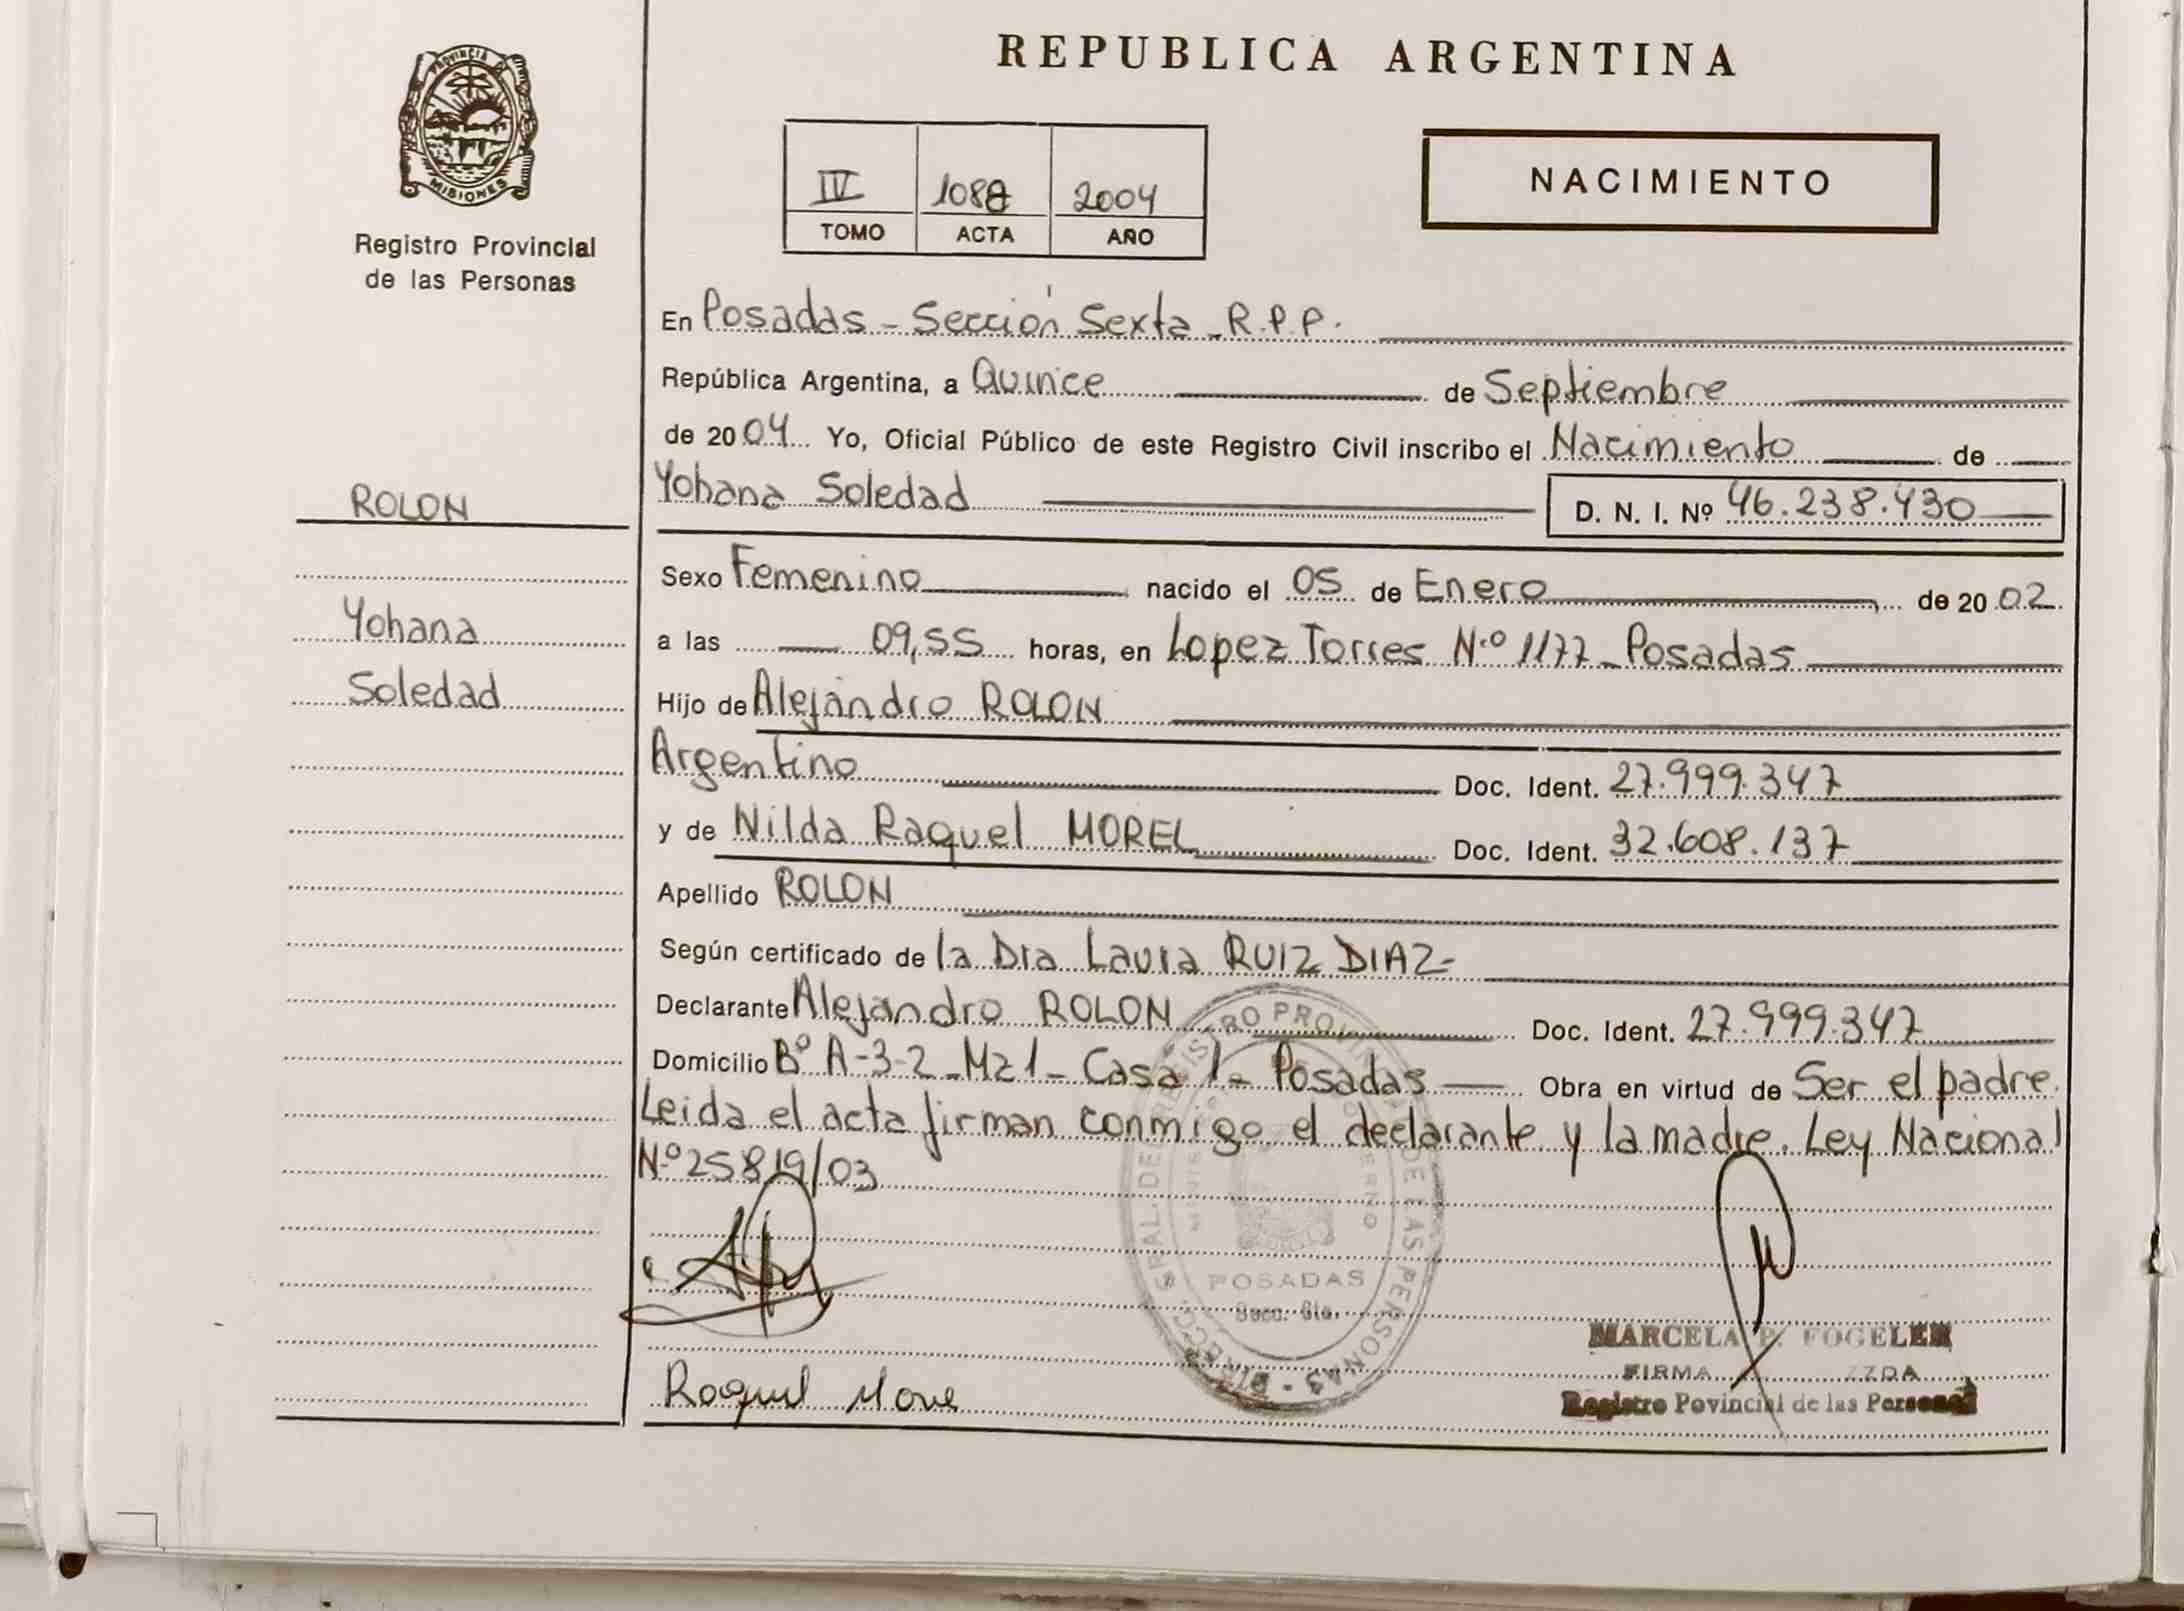 PROVINCIA DE
MISIONES
Registro Provincial
de las Personas
ROLON
Yohana
Soledad
REPUBLICA ARGENTINA
IV 1088 2004
TOMO ACTA AÑO
NACIMIENTO
En Posadas - Sección Sexta - R.P.P.
República Argentina, a Quince de Septiembre
de 2004 Yo, Oficial Público de este Registro Civil inscribo el Nacimiento de
Yohana Soledad D. N. I. Nº 46.238.430
Sexo Femenino nacido el 05 de Enero de 2002
a las 09,55 horas, en Lopez Torres N.º 1177 - Posadas
Hijo de Alejandro ROLON
Argentino Doc. Ident. 27.999.347
y de Nilda Raquel MOREL Doc. Ident. 32.608.137
Apellido ROLON
Según certificado de la Dra Laura RUIZ DIAZ-
Declarante Alejandro ROLON Doc. Ident. 27.999.347
Domicilio Bº A-3-2 - Mz 1 - Casa 1 - Posadas Obra en virtud de Ser el padre.
Leida el acta firman conmigo el declarante y la madre. Ley Nacional
N.º 25819/03
POSADAS
Secc. 6ta.
MARCELA P. FOGELER
FIRMA
Registro Povincial de las Personas
Raquel More